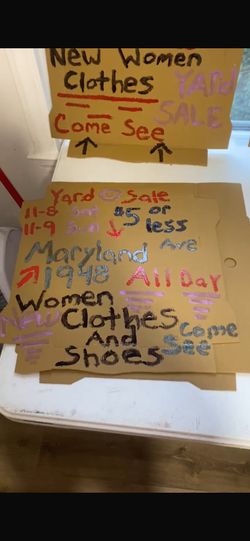 New Women
Clothes
YARD
SALE
Come See
Yard Sale
11-8 Sat $5 or
11-9 Sun less
Maryland Ave
1948 All Day
Women
New Clothes
And
Shoes
Come
See